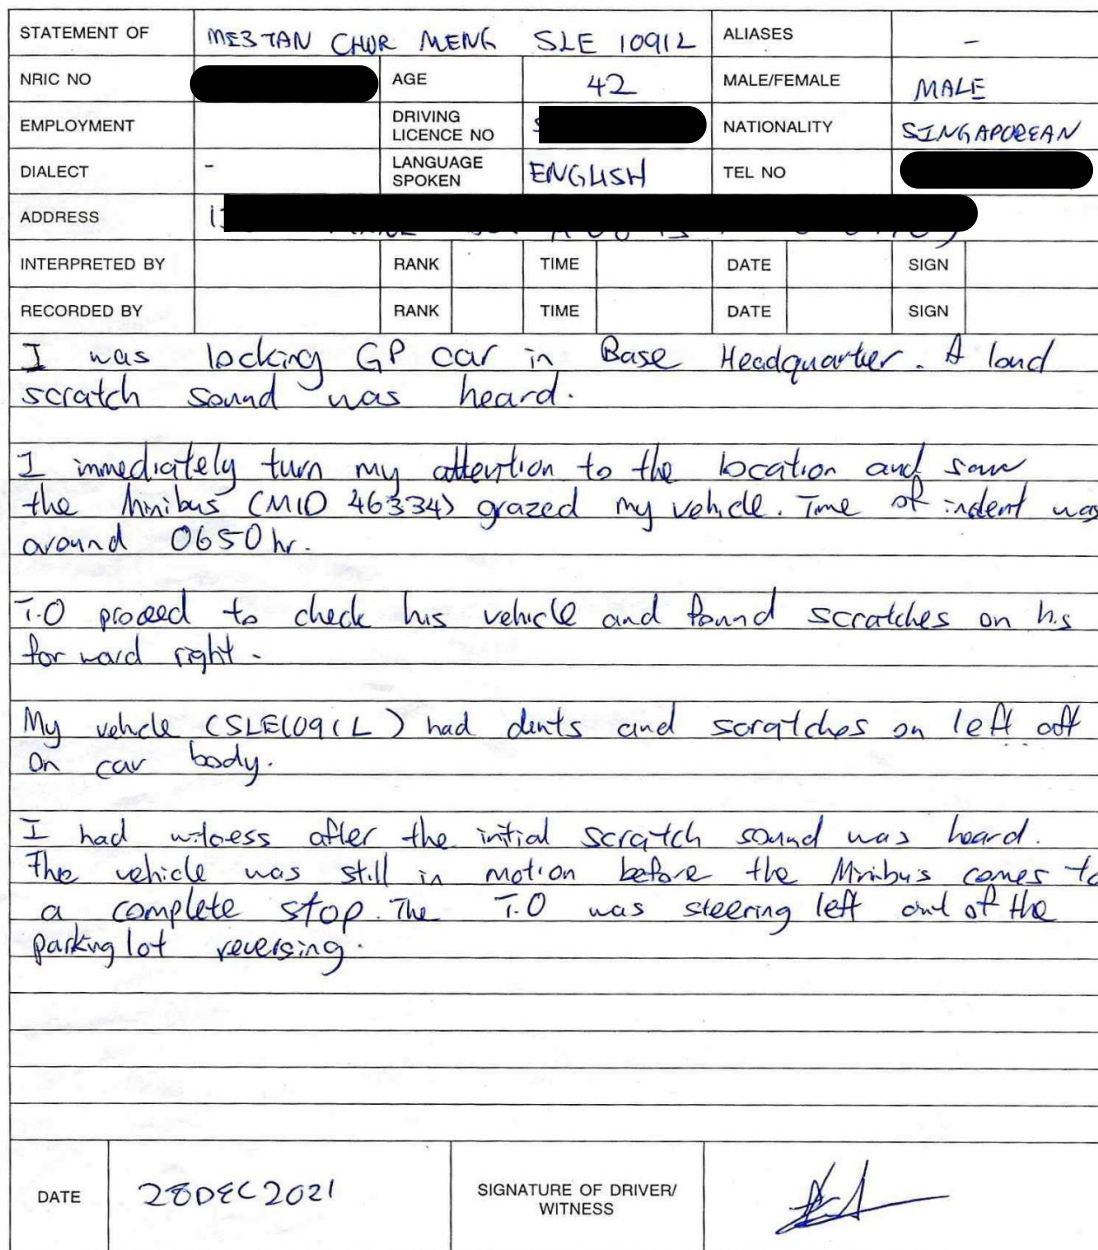 STATEMENT OF ME3 TAN CHOR MENG SLE 1091L ALIASES -
NRIC NO AGE 42 MALE/FEMALE MALE
EMPLOYMENT DRIVING LICENCE NO S NATIONALITY SINGAPOREAN
DIALECT - LANGUAGE SPOKEN ENGLISH TEL NO
ADDRESS
INTERPRETED BY RANK TIME DATE SIGN
RECORDED BY RANK TIME DATE SIGN
I was locking GP car in Base Headquarter. A loud
scratch sound was heard.
I immediately turn my attention to the location and saw
the Minibus (MID 46334) grazed my vehicle. Time of indent was
around 0650hr.
T.O proceed to check his vehicle and found scratches on his
forward right.
My vehicle (SLE1091L) had dents and scratches on left aft
on car body.
I had witness after the initial scratch sound was heard.
The vehicle was still in motion before the Minibus comes to
a complete stop. The T.O was steering left out of the
parking lot reversing.
DATE 28DEC2021 SIGNATURE OF DRIVER/
WITNESS